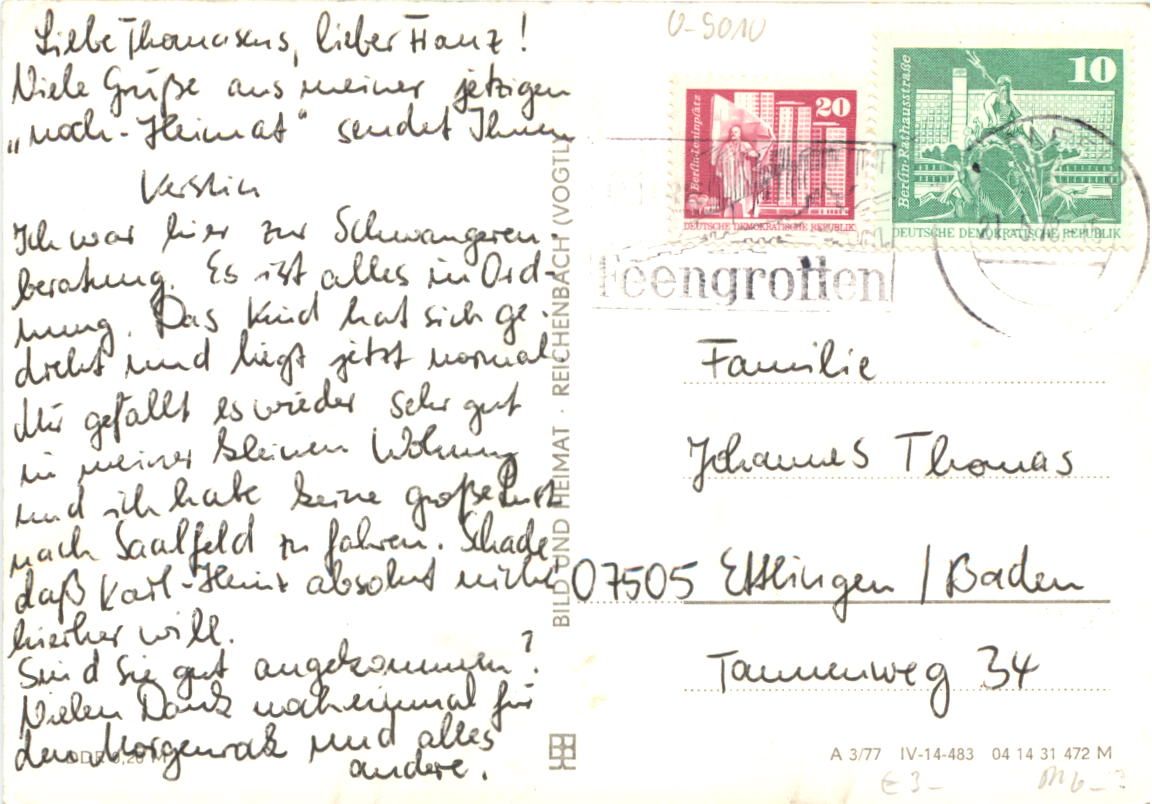 Liebe Thomasens, lieber Franz!
Viele Grüße aus meiner jetzigen
„noch-Heimat“ sendet Ihnen
Kerstin
Ich war hier zur Schwangeren-
beratung. Es ist alles in Ord-
nung. Das Kind hat sich ge-
dreht und liegt jetzt normal.
Mir gefällt es wieder sehr gut
in meiner kleinen Wohnung
und ich habe keine große Lust
nach Saalfeld zu fahren. Schade
daß Karl-Heinz absolut nicht
hierher will.
Sind Sie gut angekommen?
Vielen Dank nocheinmal für
den Morgenrock und alles
andere.
BILD UND HEIMAT · REICHENBACH (VOGTL
0-9010
Berlin-Leninplatz
20
DEUTSCHE DEMOKRATISCHE REPUBLIK
Berlin-Rathausstraße
10
DEUTSCHE DEMOKRATISCHE REPUBLIK
Feengrotten
Familie
Johannes Thomas
07505 Ettlingen / Baden
Tannenweg 34
A 3/77 IV-14-483 04 14 31 472 M
€ 3-